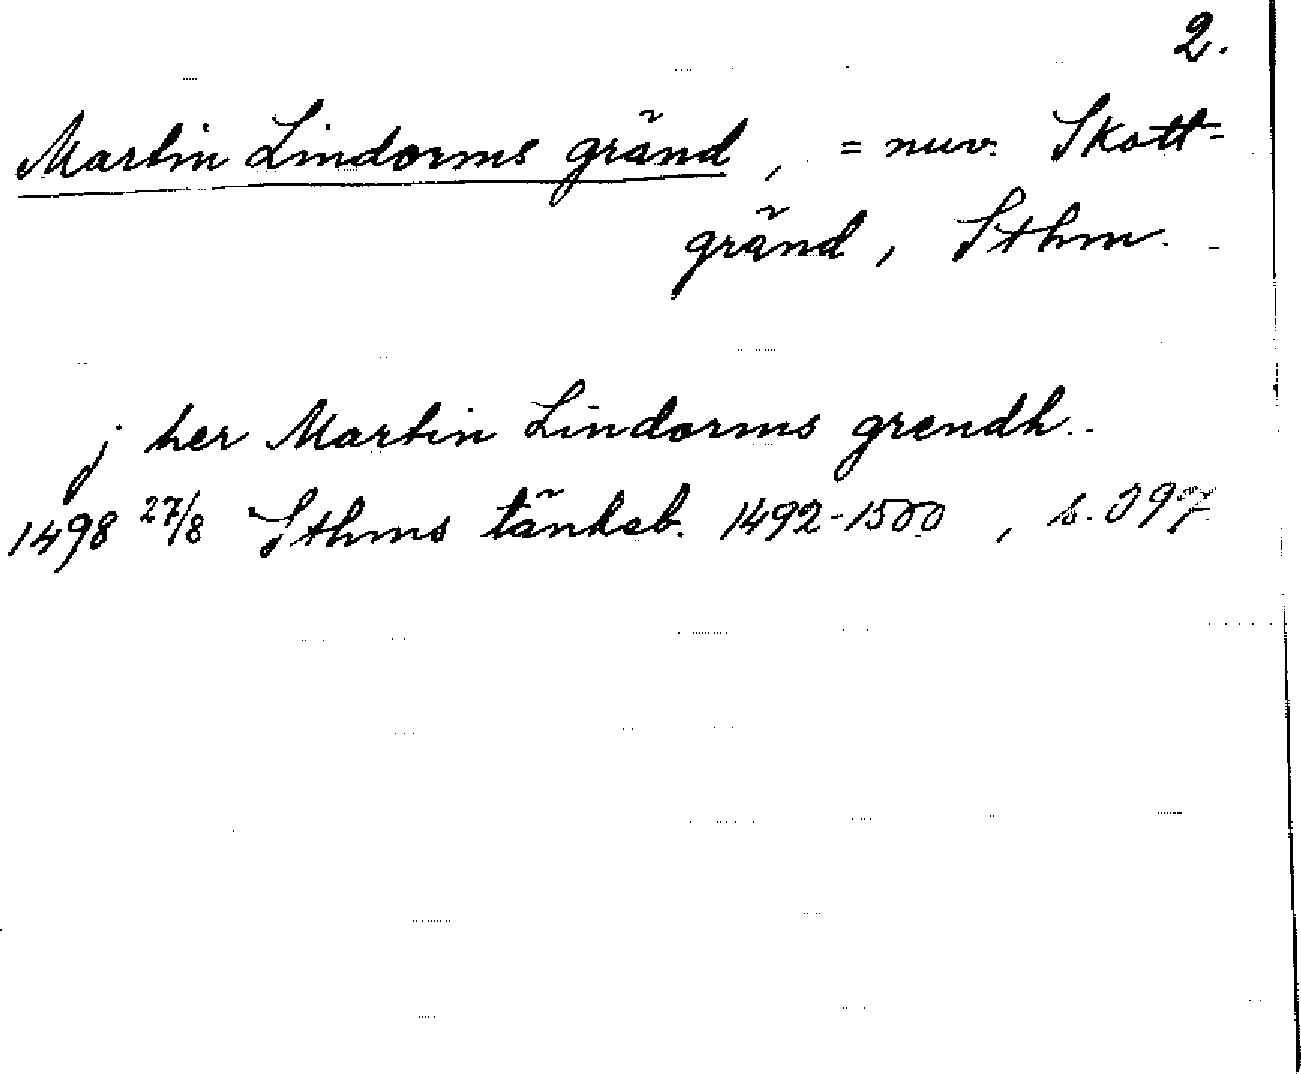 2.
Martin Lindorms gränd, = nuv. Skott-
gränd, Sthm.
j her Martin Lindorms grendh.
1498 27/8 Sthms tänkeb. 1492-1500, s. 397